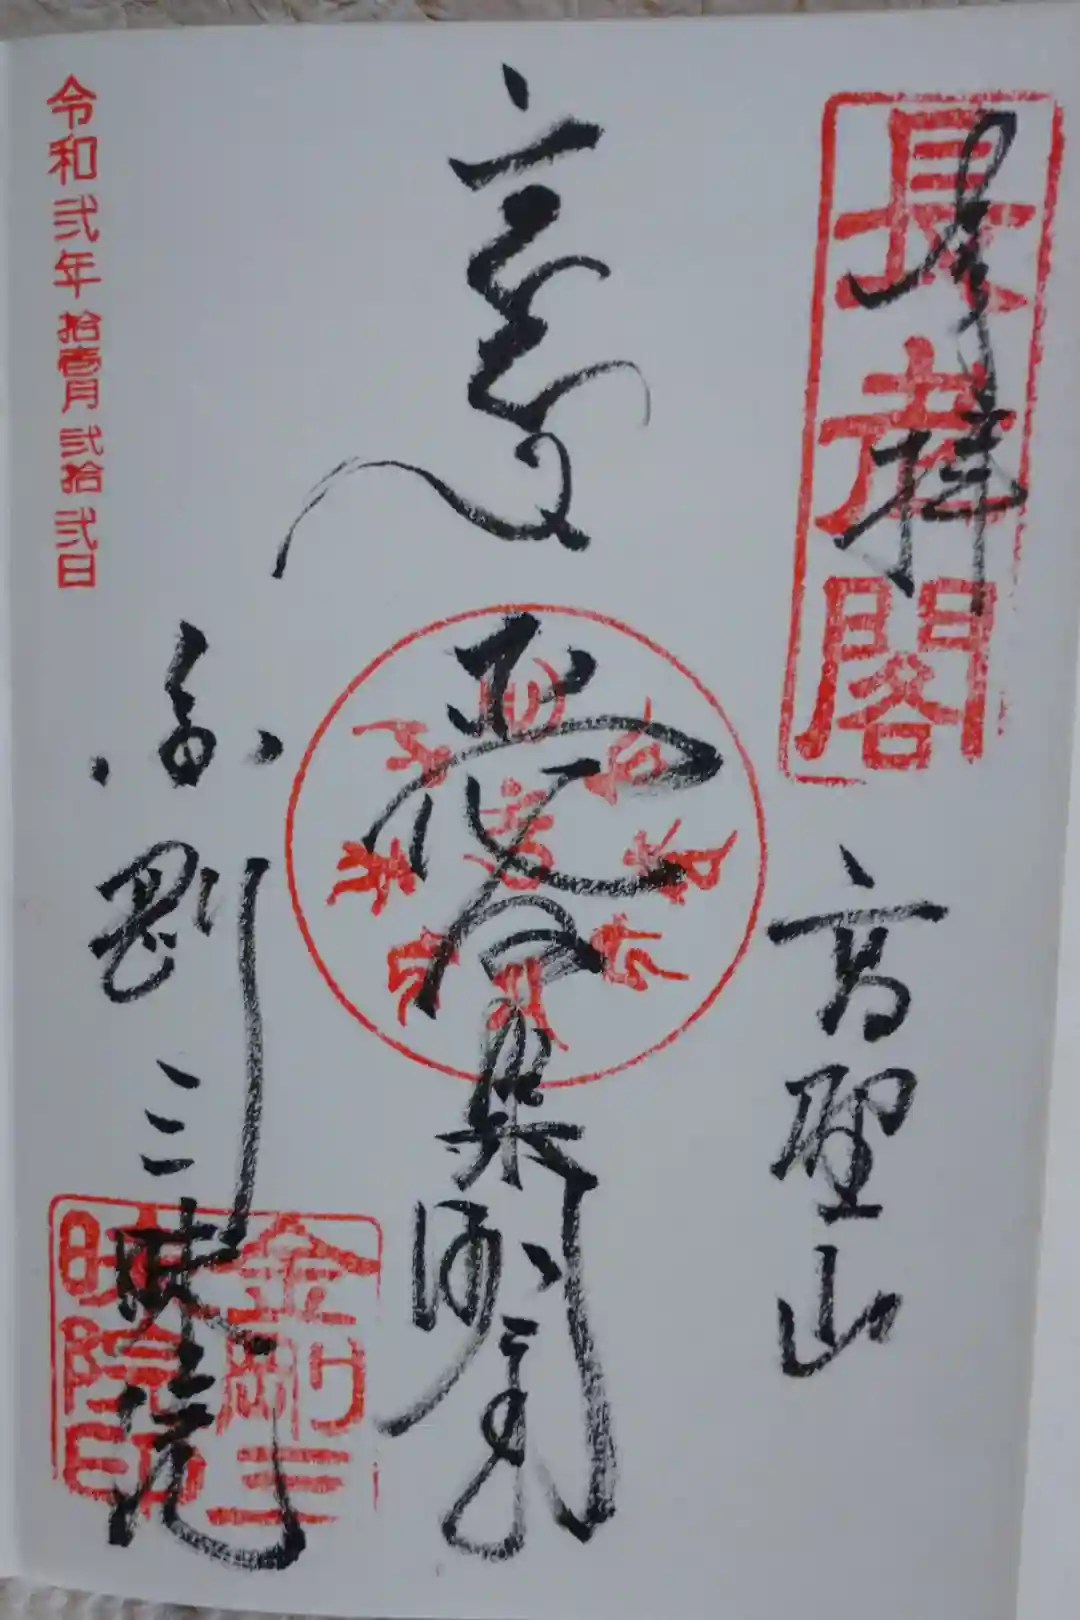 長老閣
奉拝
高野山
愛染明王
令和弐年拾壱月弐拾弐日
金剛三昧院
金剛三
昧院印